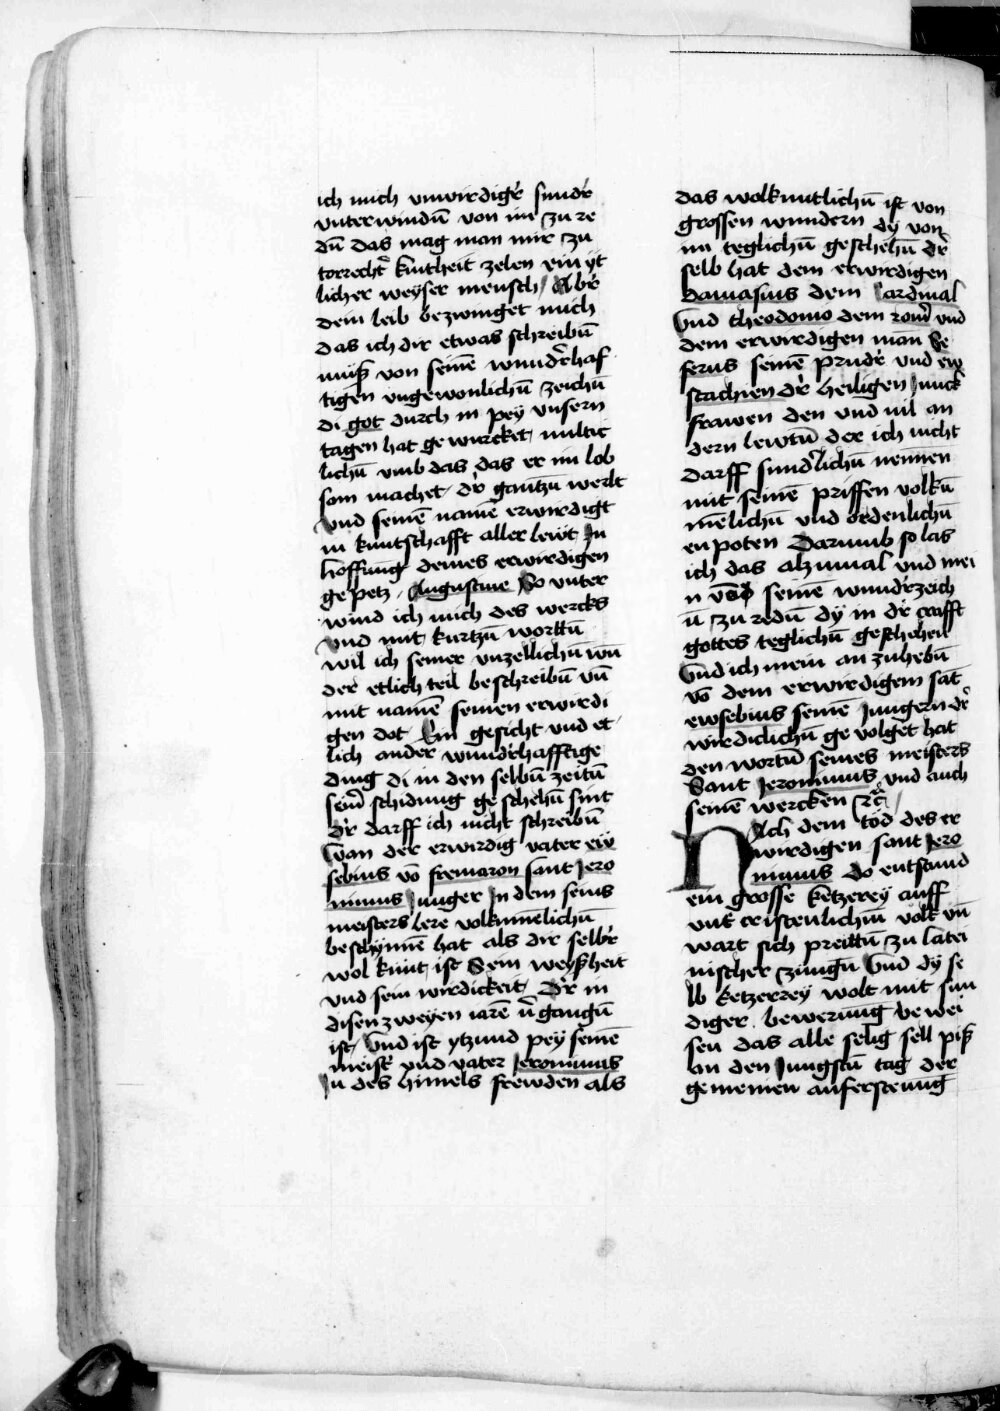 ich mich vnwirdigr̉ sundr̉
vnterwindū von im zu re
dū das mag man mir zu
torrechtr̉ kintheit zelen ein yt
licher weyser mensch / Abr̉
dein leib bezwinget mich
das ich dir etwas schreibū
muß von seinē wundr̉haf
tigen vngewonlichū zeichū
di got durch in pey vnsern
tagen hat gewurcket
lichū vmb das das er im lob
sam machet dr̉ gantzū werlt
vnd seinē namē erwirdigt
in kuntschafft aller lewt Jn
hoffnung deines erwirdigen
gepetz Augustine So vnter
wind ich mich des wercks
vnd mit kurtzū worttū
wil ich seiner vnzellichū wū
der etlich teil beschreibū vū
mit namē seinen erwirdi
gen dot Ein gesicht vnd et
lich ander wundr̉hafftige
ding di in den selbū zeitū
seinr̉ schidung geschehū sint
dr̉ darff ich nicht schreibū
wan der erwirdig vater ew
sebius vō fremaron sant Jero
nimus Junger Jn dem seins
meisters lere volkumēlichū
beschynnē hat als dir selbr̉
wol kunt ist Sein weyßheit
vnd sein wirdickeit / Dr̉ in
disen zweyen iarē ū̉gangū
ist / Vnd ist ytzund pey seinē
meistr̉ vnd vater Jeronimus
Jn des himels frewden als
das wolkuntlichū ist von
grossen wundern dy von
im teglichū geschehū dr̉
selb hat dem erwirdigen
damasius dem Cardinal
Vnd theodomo dem romr̉ vnd
dem erwirdigen man Se
ferus seinē prudr̉ vnd ew
stachien dr̉ heiligen Junck
frawen den vnd vil an
dern lewtū der ich nicht
darff sundr̉lichū nennen
mit seinē priffen volkū
mēlichū vnd ordenlichū
enpoten Darumb so las
ich das alzumal vnd mei
n seinē wundr̉zeich
ū zu redū dy in dr̉ crafft
gottes teglichū geschehen
Vnd ich mein an zuhebū
vō dem erwirdigem sāt
ewsebius seinē Jungern dr̉
wirdiclichū gevolget hat
den wortū seines meisters
Sant Jeronimus vnd auch
seinē wercken ꝛc̃
Nach dem tod des er
wirdigen sant Jero
nimus Do entstund
ein grosse ketzerey auff
vnt̉ cristenlichm volk vū
wart sich preittū zu latei
nischer zungū Vnd dy se
lb ketzerrey wolt mit sun
diger bewerung bewei
sen das alle selig sell piß
an den Jungstū tag der
gemeinen auferstenng